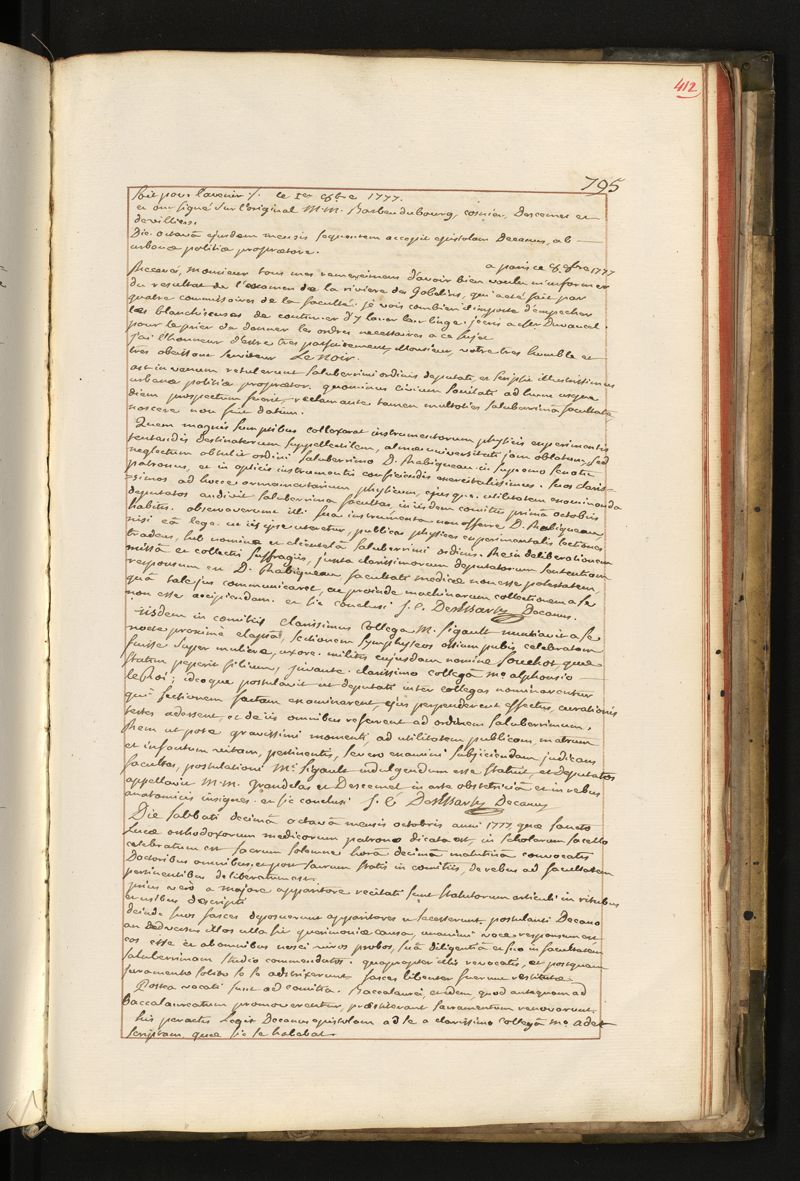 412
795
soit pour l'avenir ./. le 1er 8bre 1777.
et ont signé sur l'original M.M. Barbeu dubourg, cosnier, Descemet et
devilliers.
Die octavâ ejusdem mensis sequentem accepit epistolam Decanus, ab
urbanae politiae propraetore.
a paris ce 8 8bre 1777
Recevez, monsieur tous mes remerciemens d'avoir bien voulu m'informer
du resultat de l'examen de la riviere des Gobelins, qui a eté fait par
quatre commissaires de la faculté. je vois combien il importe d'empecher
les blanchisseuses de continuer d'y laver leur linge. j'ecris a cet
pour le prier de donner les ordres necessaires a ce sujet
j'ai l'honneur d'estre tres parfaitement, Monsieur, votre tres humble et
tres obeissant serviteur Le Noir.
ast in vanum retulerunt saluberrimi ordinis deputati, et scripsit illustrissimus
urbanae politiae propraetor. quominus civium sanitati ad hunc usque
diem prospectum fuerit, reclamante tamen multoties saluberrima facultate,
noscere non fuit datum.
Quem magnis sumptibus collegerat instrumentorum physicis experimentis
tentandis destinatorum suppellectilem, almae universitati jam oblatam, sed
neglectum obtulit ordini saluberrimo D. Rabiqueau in supremo senatu
patronus, et in opticis instrumentis conficiendis exercitatissimus. suos claris-
=simos ad hocce armamentarium physicum, ejusque utilitatem examinanda
deputatos audivit saluberrima facultas, in iisdem comitiis primâ octobris
habitis. observaverunt illi sua instrumenta non offerre D. Rabiqueau,
nisi eâ lege ut iis ipse uteretur, publicas physices experimentalis lectiones
tradens, sub nomine et clientelâ saluberrimi ordinis. Re in deliberationem
missâ et collectis suffragiis, juxta clarissimorum deputatorum sententiam
responsum est D. Rabiqueau facultati medicae non esse potestatem,
quâ tale jus communicaret, ac proinde machinarum collectionem a se
non esse accipiendam. et sic conclusi J. C. DesEssartz Decanus.
iisdem in comitiis clarissimus collega M. Sigault nuntiavit a se
nocte proximè elapsâ, sectionem symphyseos ossium pubis celebratam
fuisse super muliere, uxore militis cujusdam nomine Souchot, quae
statim peperit filium, juvante clarissimo collegâ mo alphonsio
le Roi; ideoque postulavit ut deputati inter collegas nominarentur
qui sectionem factam examinarent, ejus perpenderent effectus, curationis
testes adessent, et de iis omnibus referrent ad ordinem saluberrimum.
Rem ut pote gravissimi momenti, ad utilitatem publicam, matrum
et infantum vitam, pertinentis, severo examini subjiciendam judicans
facultas, postulationi Mi Sigault indulgendum esse statuit, et deputatos
appellavit M.M. Grandclas et Descemet in arte obstetriciâ et in rebus
anatomicis insignes. et sic conclusi J. C DesEssartz Decanus
Die sabbati decimâ octavâ mensis octobris anni 1777, quae sancto
Lucae orthodoxorum medicorum patrono dicata est, in scholarum sacello
celebratum est sacrum solemne horâ decimâ matutinâ convocatis
Doctoribus omnibus, et post sacrum statis in comitiis, de rebus ad facultatem
pertinentibus deliberatum est.
prius verò a majore apparitore recitati sunt statutorum articuli in ritibus
et usibus descripti
deinde suos fasces deposuerunt apparitores et secesserunt, postulanti Decano
an adversus illos ulla sit querimoniae causa, unanimi voce responsum est
eos esse et ab omnibus nosci viros probos, suâ diligentiâ et suo in facultatem
saluberrimam studio commendatos. quapropter illis revocatis, et postquam
juramento solito se se adstrixerunt fasces libenter fuerunt restitutae.
Postea vocati sunt ad comitia Baccalaurei, et idem, quod antequam ad
Baccalaureatum promoverentur, praestiterant sacramentum renovarunt.
his peractis Legit Decanus epistolam ad se a clarissimo collegâ mo adet
scriptam, quae sic se habebat.